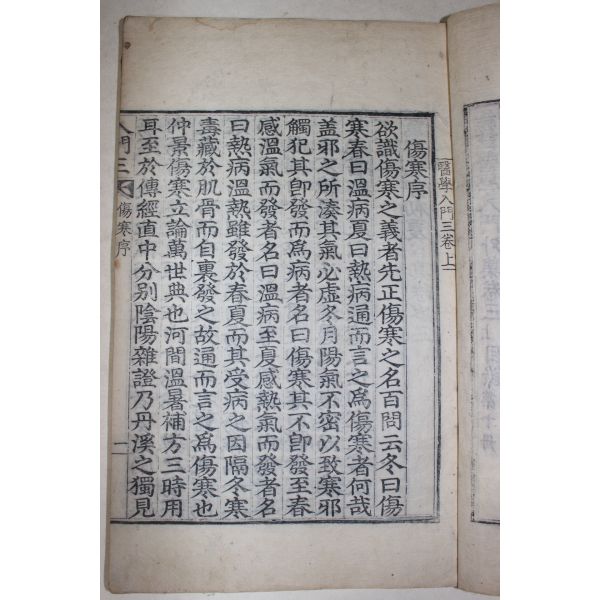 醫學入門三卷上
傷寒序
欲識傷寒之義者先正傷寒之名百問云冬曰傷
寒春曰溫病夏曰熱病通而言之爲傷寒者何哉
盖邪之所湊其氣必虛冬月陽氣不密以致寒邪
觸犯其卽發而爲病者名曰傷寒其不卽發至春
感溫氣而發者名曰溫病至夏感熱氣而發者名
曰熱病溫熱雖發於春夏而其受病之因隔冬寒
毒藏於肌骨而自裏發之故通而言之爲傷寒也
仲景傷寒立論萬世典也河間溫暑補方三時用
耳至於傳經直中分別陰陽雜證乃丹溪之獨見
入門三 傷寒序 一